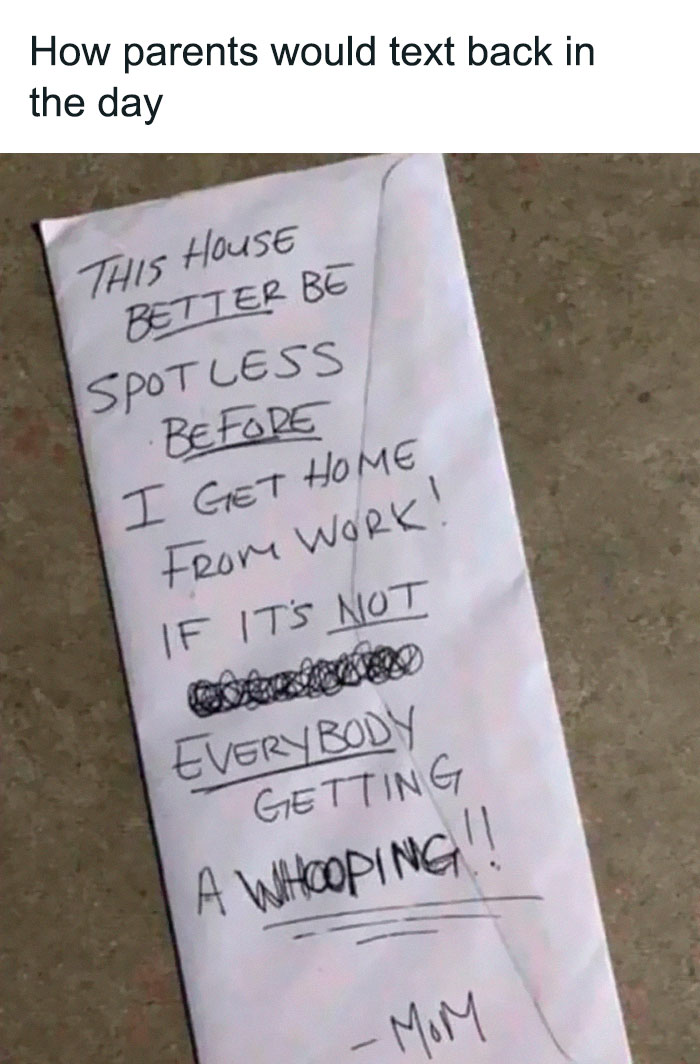 How parents would text back in
the day
THIS HOUSE
BETTER BE
SPOTLESS
BEFORE
I GET HOME
FROM WORK!
IF IT'S NOT
EVERYBODY
GETTING
A WHOOPING!!
- MOM